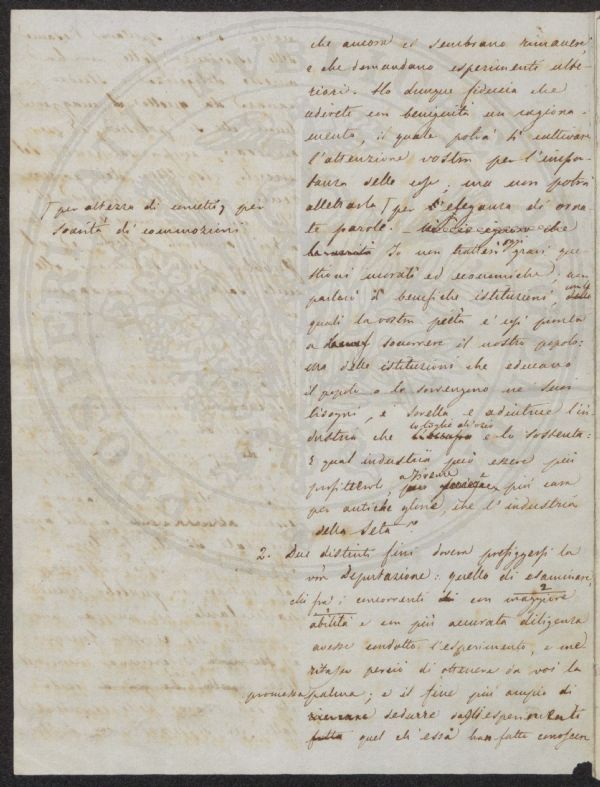 che ancora ci sembrano rimanere,
e che domandano esperimenti ulte-
riori. Ho dunque fiducia che
udirete con benignità un ragiona-
mento, il quale potrà sì cattivare
l'attenzione vostra per l'impor-
tanza delle cose, ma non potrà
allettarla per l'eleganza di orna-
te parole.
per altezza di concetti, per
soavità di commozioni
Io non tratterò oggi gravi que-
stioni morali ed economiche, non
parlerò di benefiche istituzioni,
quali la vostra pietà è così pronta
a soccorrere il nostro popolo:
ma delle istituzioni che educano
il popolo o lo sorreggono ne' suoi
bisogni, è sorella e adiutrice l'in-
dustria che lo toglie all'ozio e lo sostenta:
E qual industria può essere più
a Firenze
proffittevole, più cara
per antiche glorie, che l'industria
della Seta?
2. Due distinti fini doveva prefiggersi la
vra Deputazione: quello di esaminare,
chi fra i concorrenti con maggiore
abilità e con più accurata diligenza
avesse condotto l'esperimento, e me-
ritasse perciò di ottenere da voi la
promessa palma; e il fine più ampio di
dedurre dagli esperimenti
quel ch'essi han fatto conoscere